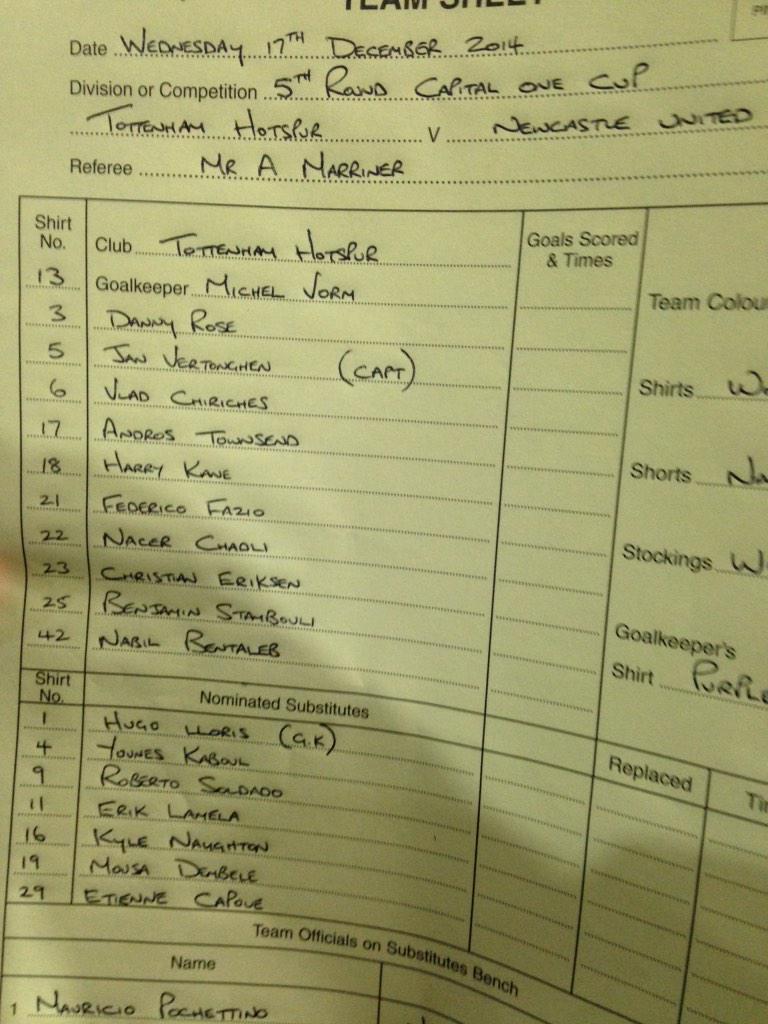 TEAM SHEET
Date WEDNESDAY 17TH DECEMBER 2014
Division or Competition 5TH ROUND CAPITAL ONE CUP
TOTTENHAM HOTSPUR V NEWCASTLE UNITED
Referee MR A MARRINER
Shirt No. Club TOTTENHAM HOTSPUR Goals Scored & Times
13 Goalkeeper MICHEL VORM
Team Colou
3 DANNY ROSE
5 JAN VERTONGHEN (CAPT)
Shirts W
6 VLAD CHIRICHES
17 ANDROS TOWNSEND
Shorts Na
18 HARRY KANE
21 FEDERICO FAZIO
Stockings W
22 NACER CHADLI
23 CHRISTIAN ERIKSEN
Goalkeeper's
Shirt PURPLE
25 BENJAMIN STAMBOULI
42 NABIL BENTALEB
Shirt No. Nominated Substitutes
Replaced Ti
1 HUGO LLORIS (G.K)
4 YOUNES KABOUL
9 ROBERTO SOLDADO
11 ERIK LAMELA
16 KYLE NAUGHTON
19 MOUSA DEMBELE
29 ETIENNE CAPOUE
Team Officials on Substitutes Bench
Name
1 MAURICIO POCHETTINO